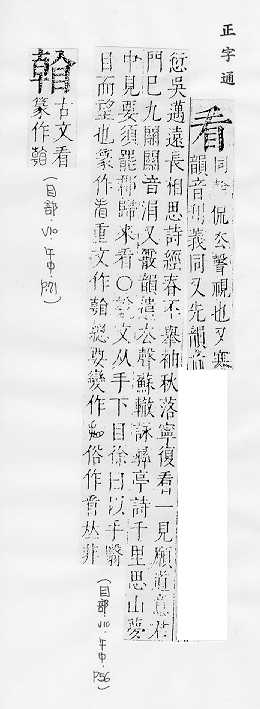 正字通
看
侃去聲視也又寒
韻音刊義同又先韻音
愆吳邁遠長相思詩經春不舉袖秋落寧復看一見願道意君
門已九關關音涓又霰韻牽去聲蘇轍詠彝亭詩千里思山夢
中見要須罷郡歸來看○說文从手下目徐曰以手翳
目而望也篆作重文作總要變作俗作丛非
(目部·V10·午中·P56)
古文看
篆作
(目部·V10·午中·P71)